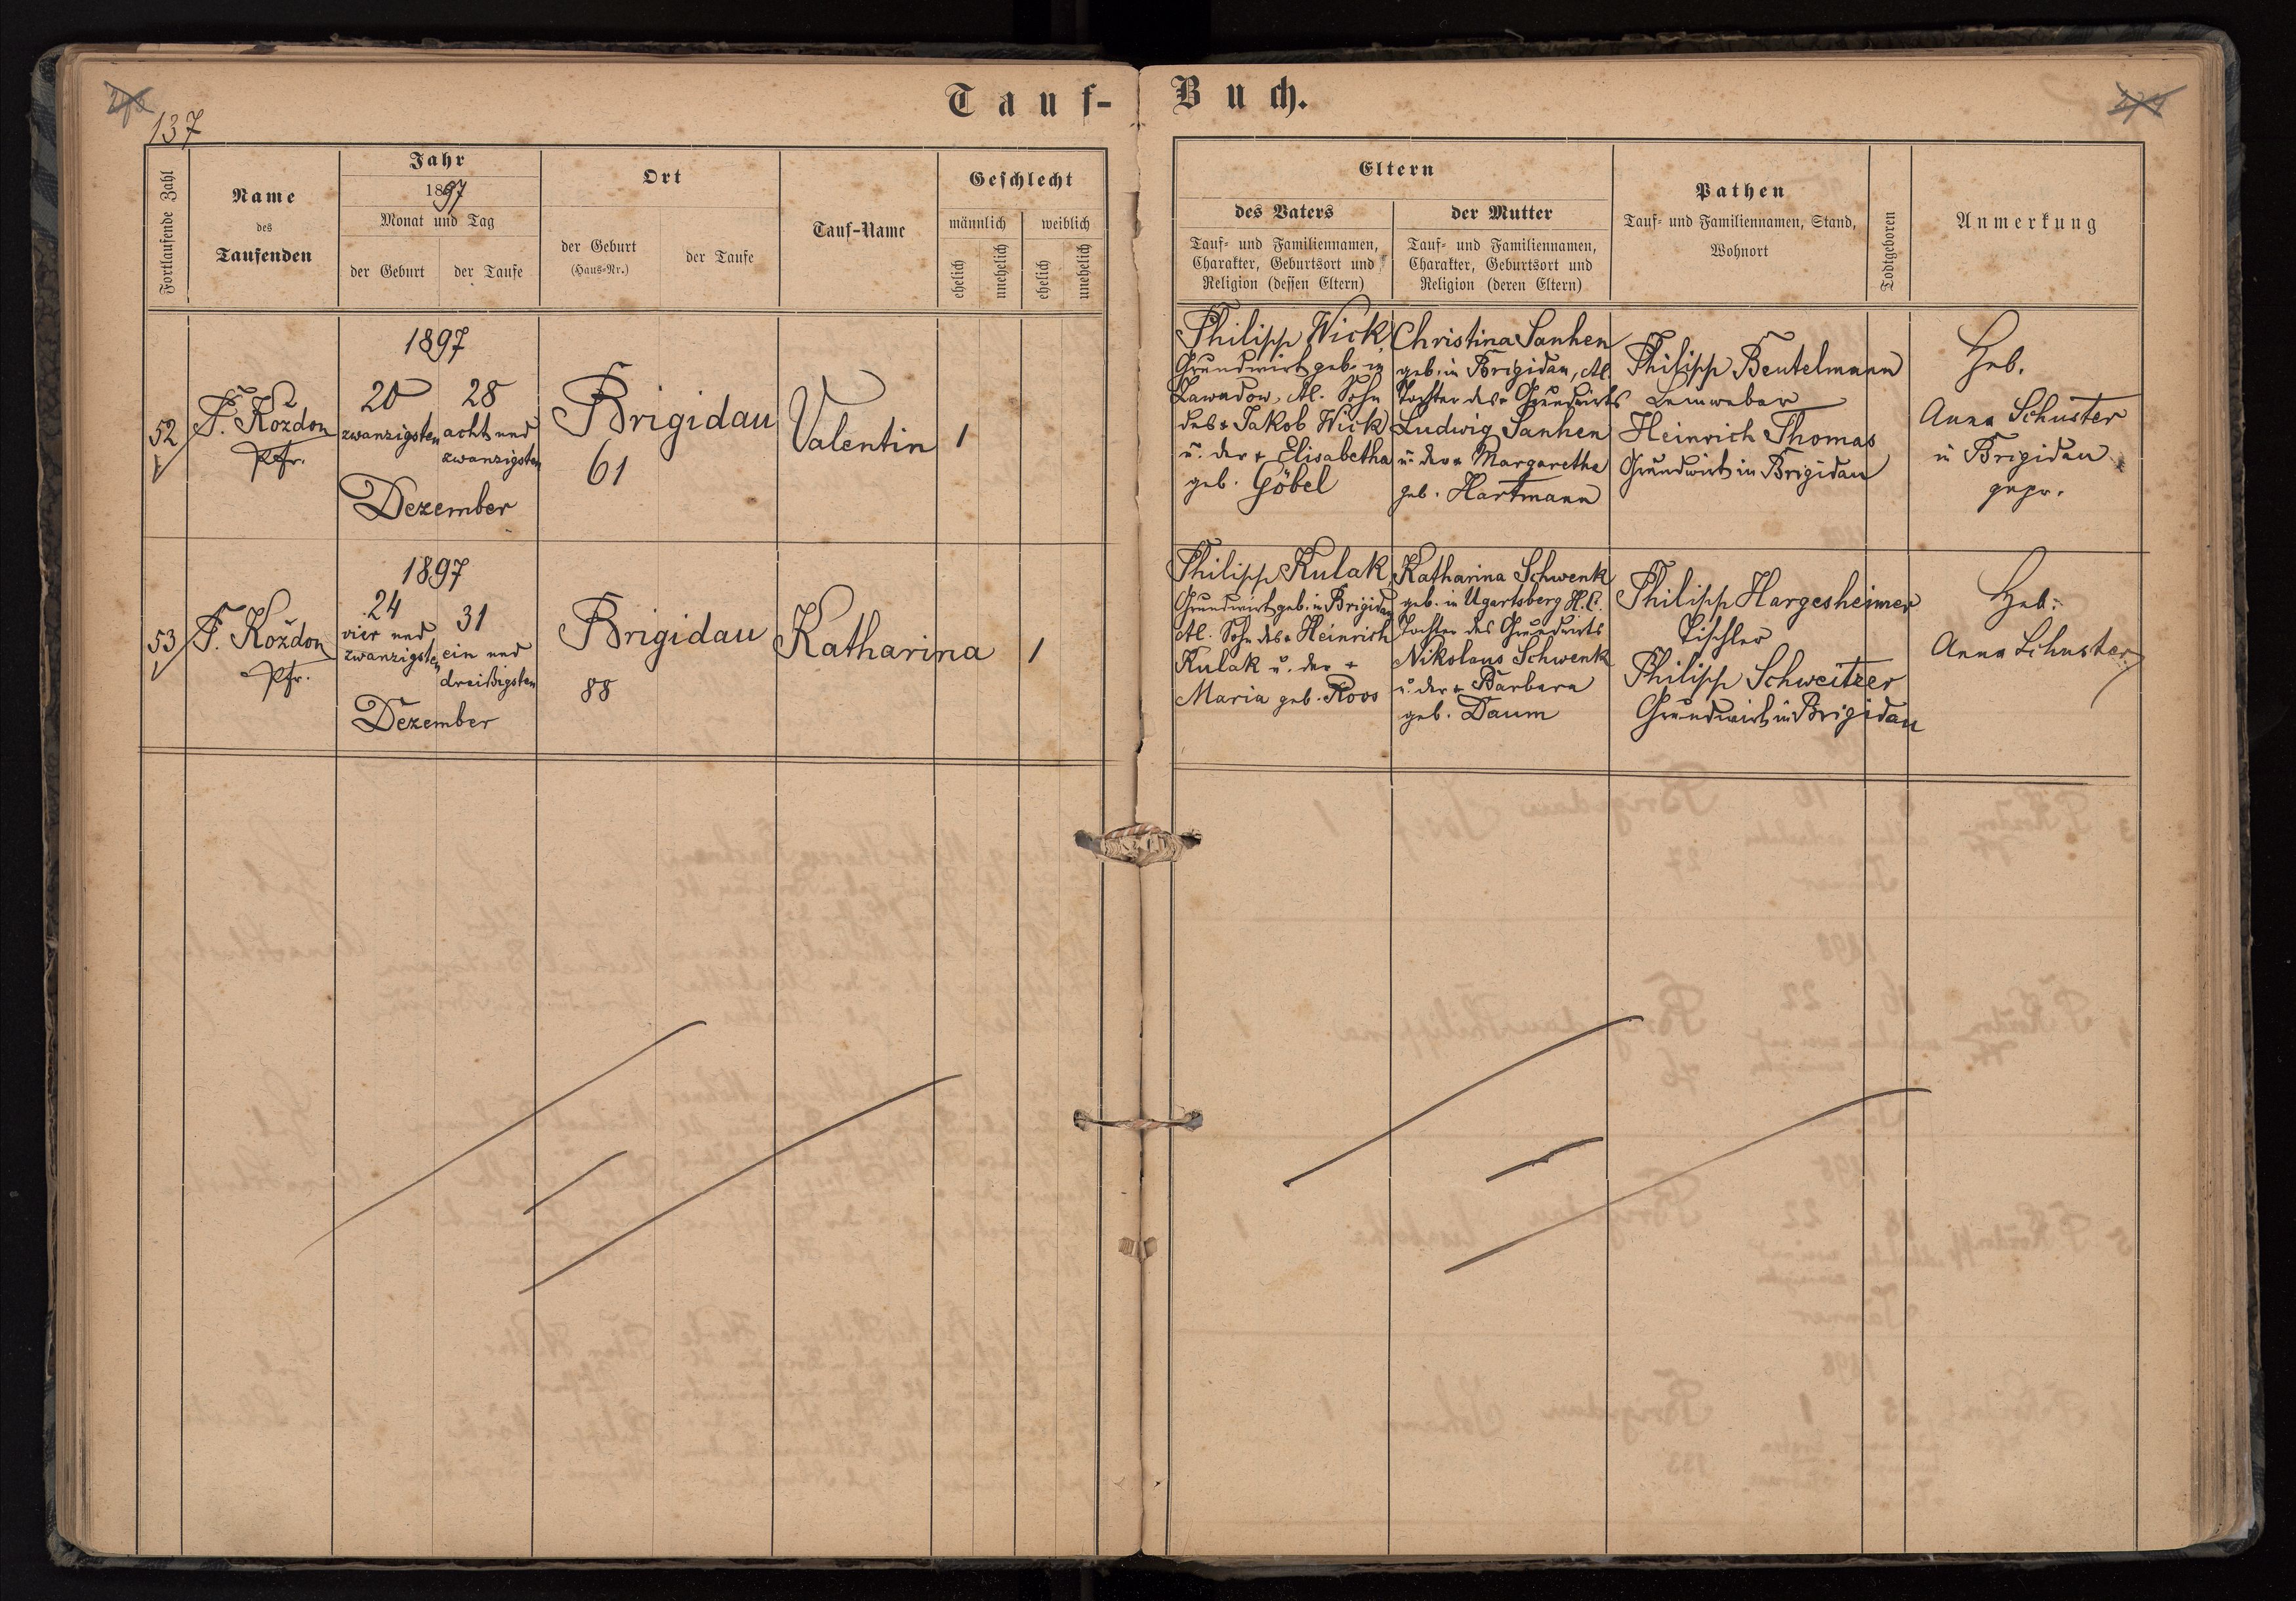 137
Tauf-Buch.
Fortlaufende Zahl
Name
des
Taufenden
Jahr
1897
Monat und Tag
der Geburt
der Taufe
Ort
der Geburt
(Haus-Nr.)
der Taufe
Tauf-Name
Geschlecht
männlich
weiblich
ehelich
unehelich
ehelich
unehelich
Eltern
des Vaters
Tauf- und Familiennamen,
Charakter, Geburtsort und
Religion (dessen Eltern)
der Mutter
Tauf- und Familiennamen,
Charakter, Geburtsort und
Religion (deren Eltern)
Pathen
Tauf- und Familiennamen, Stand,
Wohnort
Todtgeboren
Anmerkung
52
F. Koždon
Pfr.
1897
20
zwanzigsten
28
acht und
zwanzigsten
Dezember
Brigidau
61
Valentin
1
Philipp Wick,
Grundwirt geb. in
Zawadow, Al. Sohn
des + Jakob Wick
u. der + Elisabetha
geb. Göbel
Christina Sanhen
geb. in Brigidau, Al.
Tochter des Grundwirts
Ludwig Sanhen
u. der Margaretha
geb. Hartmann
Philipp Beutelmann
Leinweber
Heinrich Thomas
Grundwirt in Brigidau
Heb.
Anna Schuster
in Brigidau
gepr.
53
F. Koždon
Pfr.
1897
24
vier und
zwanzigsten
31
ein und
dreißigsten
Dezember
Brigidau
88
Katharina
1
Philipp Kulak,
Grundwirt geb. in Brigidau
Al. Sohn des Heinrich
Kulak u. der +
Maria geb. Roos
Katharina Schwenk
geb. in Ugartsberg H.C.
Tochter des Grundwirts
Nikolaus Schwenk
u. der + Barbara
geb. Daum
Philipp Hargesheimer
Tischler
Philipp Schweitzer
Grundwirt in Brigidau
Heb.
Anna Schuster